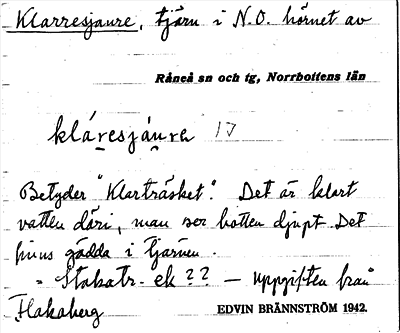 Klarresjaure, tjärn i N.O. hörnet av
Råneå sn och tg, Norrbottens län
kláresjáura
Betyder "Klarträsket". Det är klart
vatten däri, man ser botten djupt. Det
finns gädda i tjärnen.
= Stabatr. ek ?? — uppgiften från
Flakaberg
EDVIN BRÄNNSTRÖM 1942.